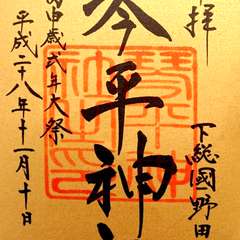 拝
下総國野田
琴平神
申歳式年大祭
平成二十八年十一月十日